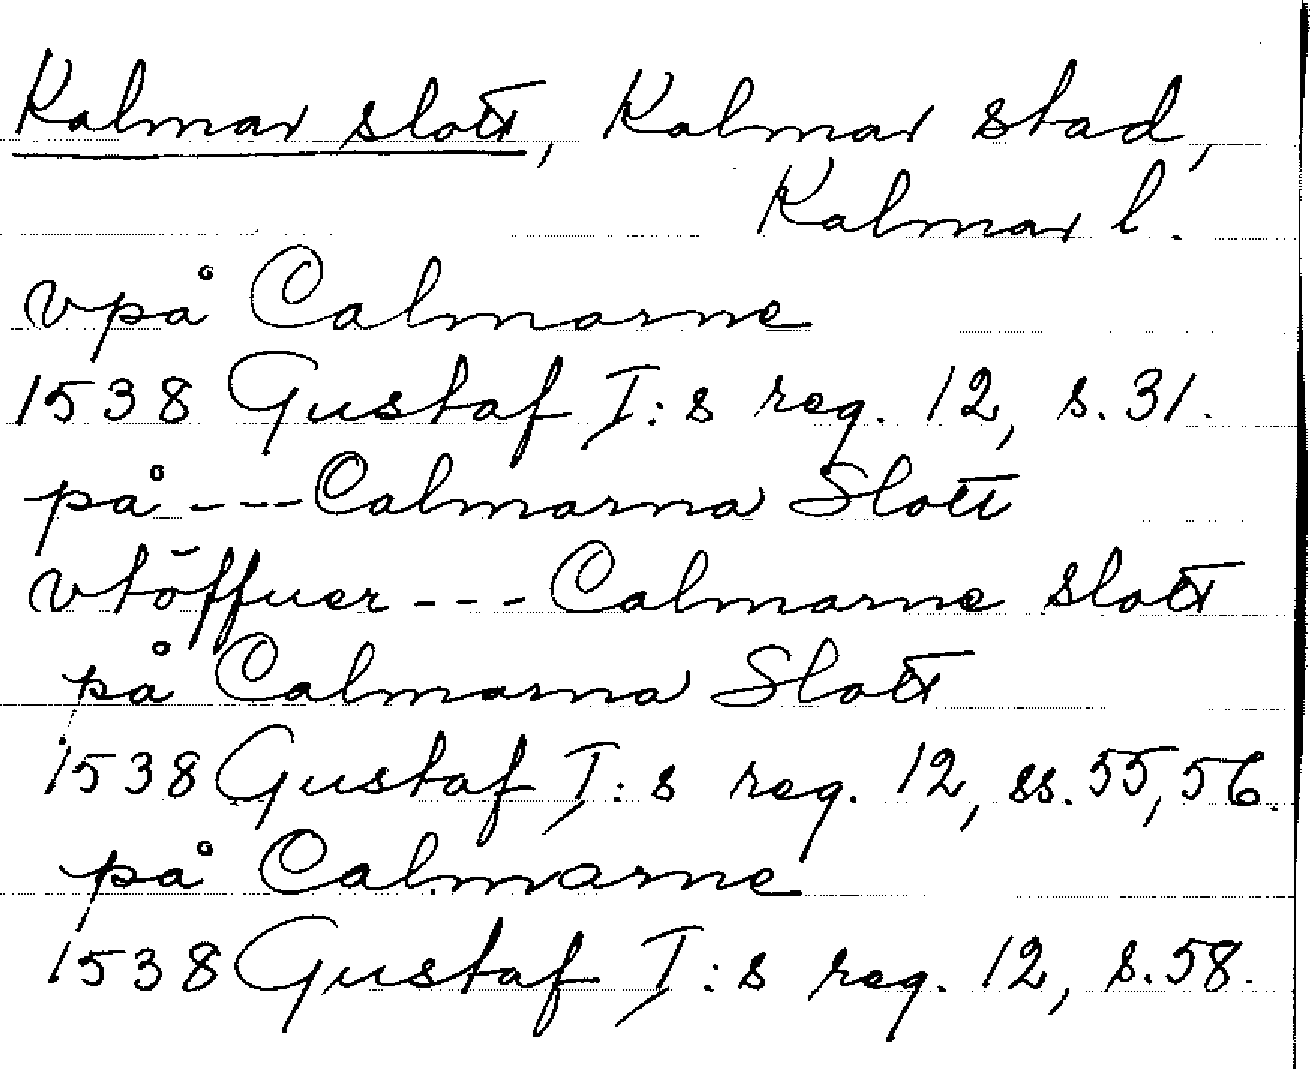 Kalmar slott, Kalmar stad,
Kalmar l.
vpå Calmarne
1538 Gustaf I:s reg. 12, s. 31.
på --- Calmarna Slott
vtöffuer --- Calmarne slott
på Calmarna Slott
1538 Gustaf I:s reg. 12, ss. 55, 56.
på Calmarne
1538 Gustaf I:s reg. 12, s. 58.